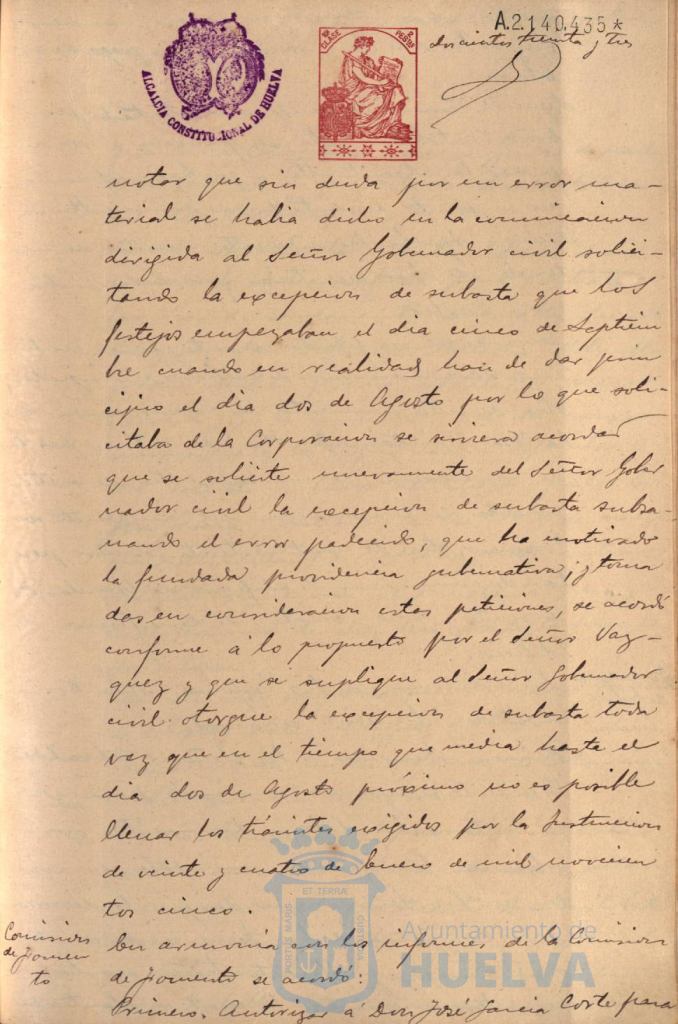 A.2.140.435*
doscientos treinta y tres
ALCALCIA CONSTITUCIONAL DE HUELVA
CLASE
PESETAS
notar que sin duda por un error ma-
terial se habia dicho en la comunicacion
dirigida al Señor Gobernador civil solici-
tando la excepcion de subasta que los
festejos empezaban el dia cinco de Septiem
bre cuando en realidad han de dar prin
cipio el dia dos de Agosto por lo que soli-
citaba de la Corporacion se sirviera acordar
que se solicite nuevamente del Señor Gober
nador civil la excepcion de subasta subsa-
nando el error padecido, que ha motivado
la fundada providencia gubernativa; y toma
das en consideracion estas peticiones, se acordó
conforme á lo propuesto por el Señor Vaz-
quez y que se suplique al Señor Gobernador
civil otorgue la excepcion de subasta toda
vez que en el tiempo que media hasta el
dia dos de Agosto próximo no es posible
llenar los trámites exigidos por la Instruccion
de veinte y cuatro de Enero de mil novecien
tos cinco.
Comision
de Fomen
to
En armonia con los informes de la Comision
de Fomento se acordó:
Primero. Autorizar á Don José Garcia Corte para
PORTUS MARIS ET TERRAE CUSTODIA
Ayuntamiento de
HUELVA